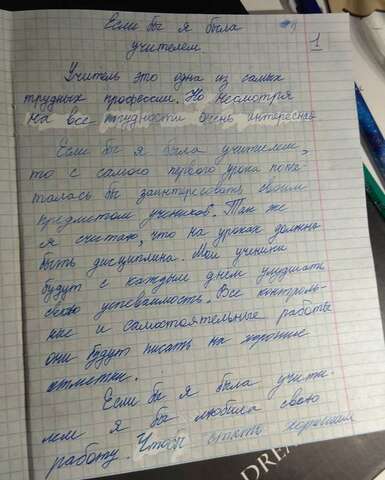 Если бы я была
учителем
1
Учитель это одна из самых
трудных професcий. Но несмотря
на все трудности очень интересная
Если бы я была учителем,
то с самого первого урока попы-
талась бы заинтересовать своим
предметом учеников. Так же
я считаю, что на уроках должна
быть дисциплина. Мои ученики
будут с каждым днем улучшать
свою успеваемость. Все контроль-
ные и самостоятельные работы
они будут писать на хорошие
отметки.
Если бы я была учите-
лем я бы любила свою
работу. Чтобы стать хорошим
DREA